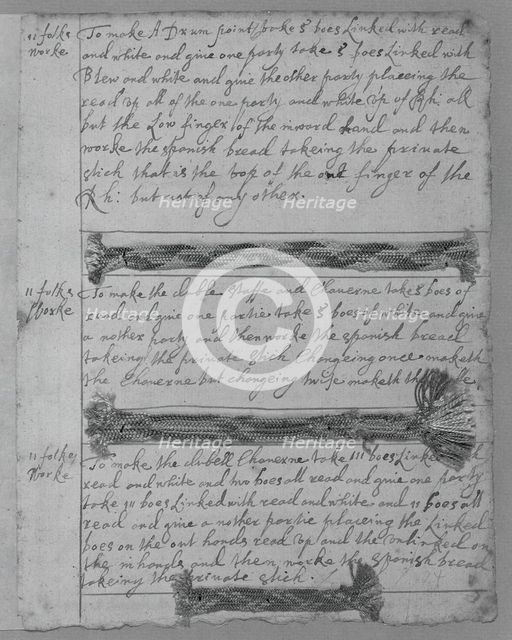 11 folks Worke
To make A Drum point take 5 boes Linked with read
and white and give one party take 5 boes Linked with
Blew and white and give the other party placeing the
read up all of the one party and white up of Rh: all
but the Low finger of the inword hand and then
worke the spanish bread takeing the private
stich that is the top of the out finger of the
Rh: but not of any other:
11 folks Worke
To make the duble and Chaverne take 5 boes of
read and give one partie take 5 boes of white and give
a nother party and then worke the spanish bread
takeing the private stich Changeing once maketh
the Chaverne but changeing twise maketh the
11 folkes Worke
To make the dubell Chaverne take 111 boes Linked
read and white and two boes all read and give one party
take 111 boes Linked with read and white and 11 boes all
read and give a nother partie placeing the Linked
boes on the out hands read up and the unlinked on
the inhands and then worke the spanish bread
takeing the private stich.
Heritage Heritage
Heritage Heritage
Heritage Heritage
©